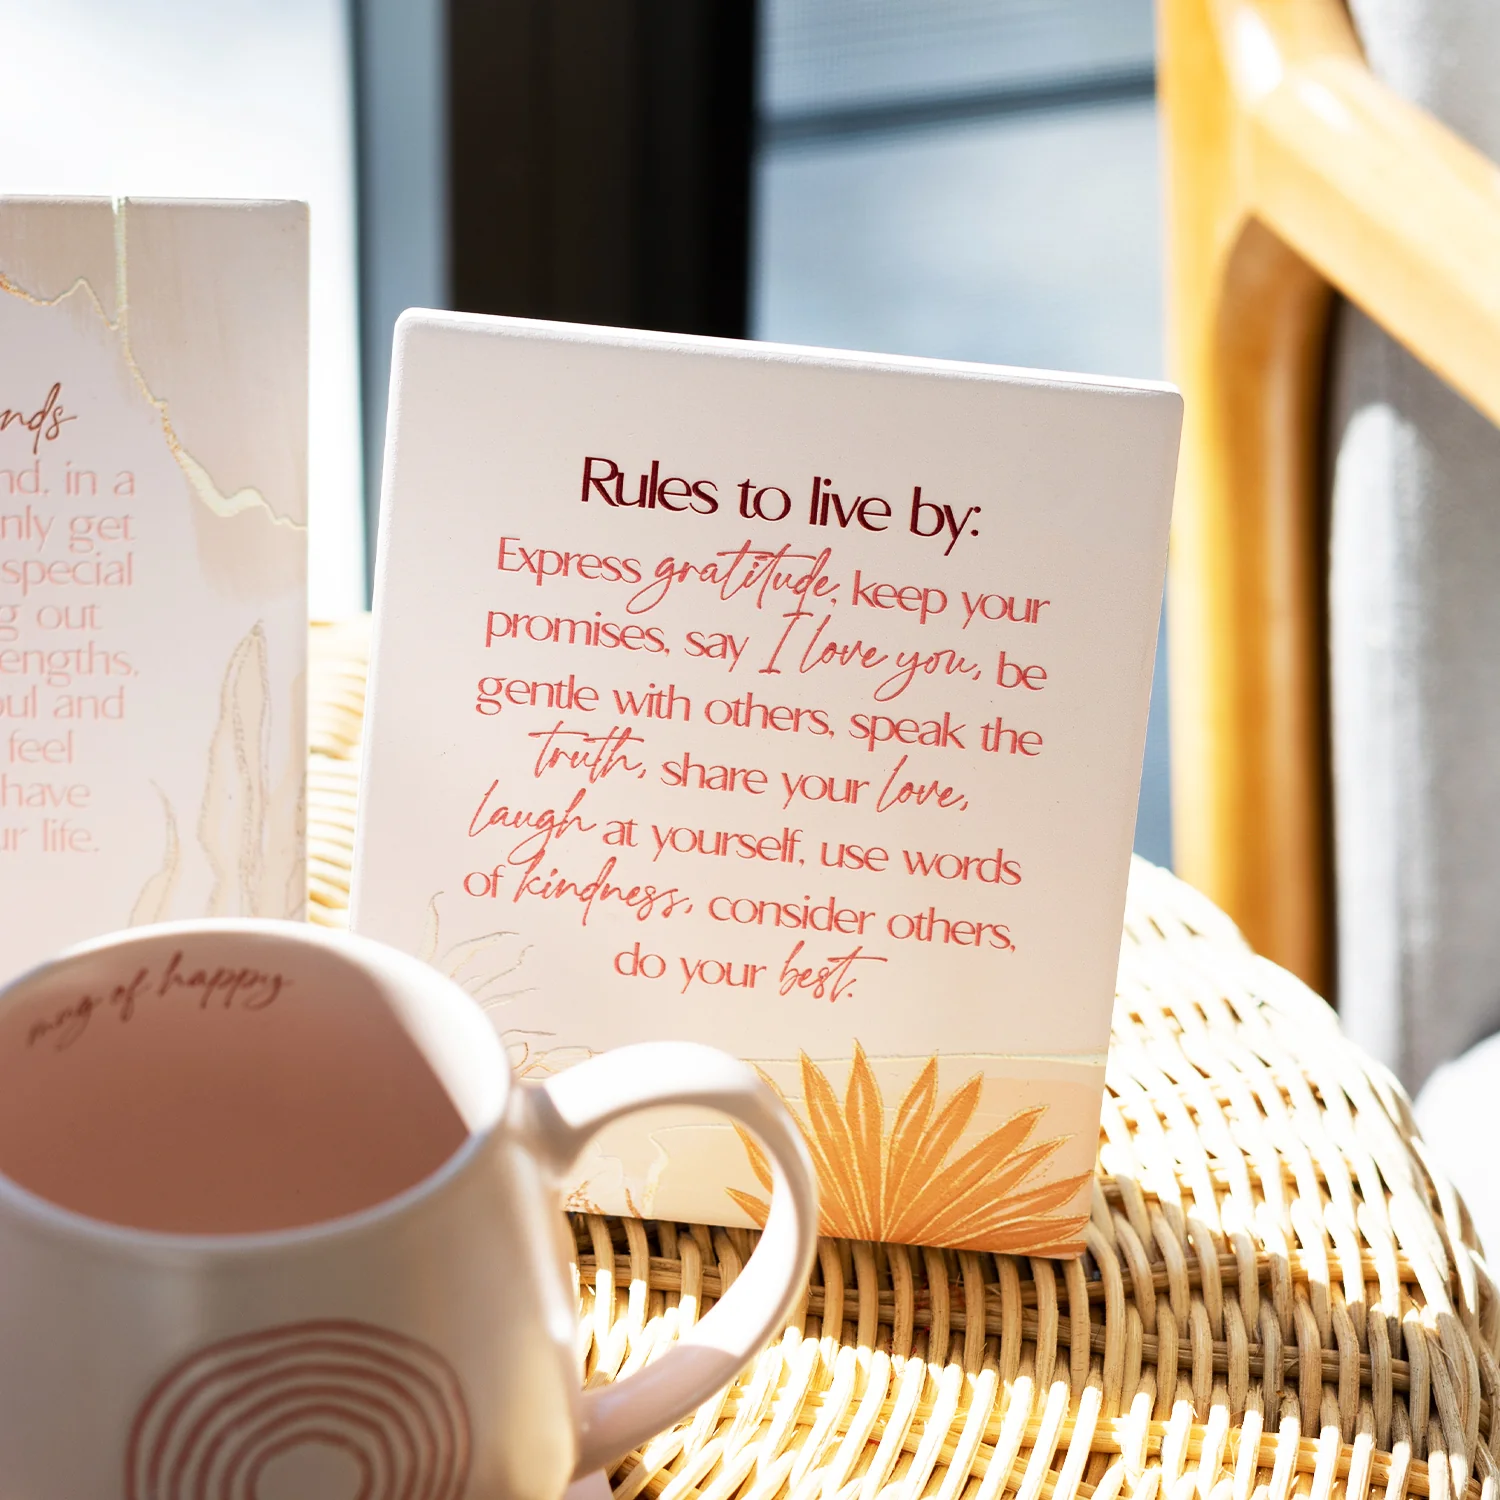 nd, in a
nly get
special
g out
engths,
oul and
feel
have
ur life.
Rules to live by:
Express gratitude, keep your
promises, say I love you, be
gentle with others, speak the
truth, share your love,
laugh at yourself, use words
of kindness, consider others,
do your best.
mug of happy